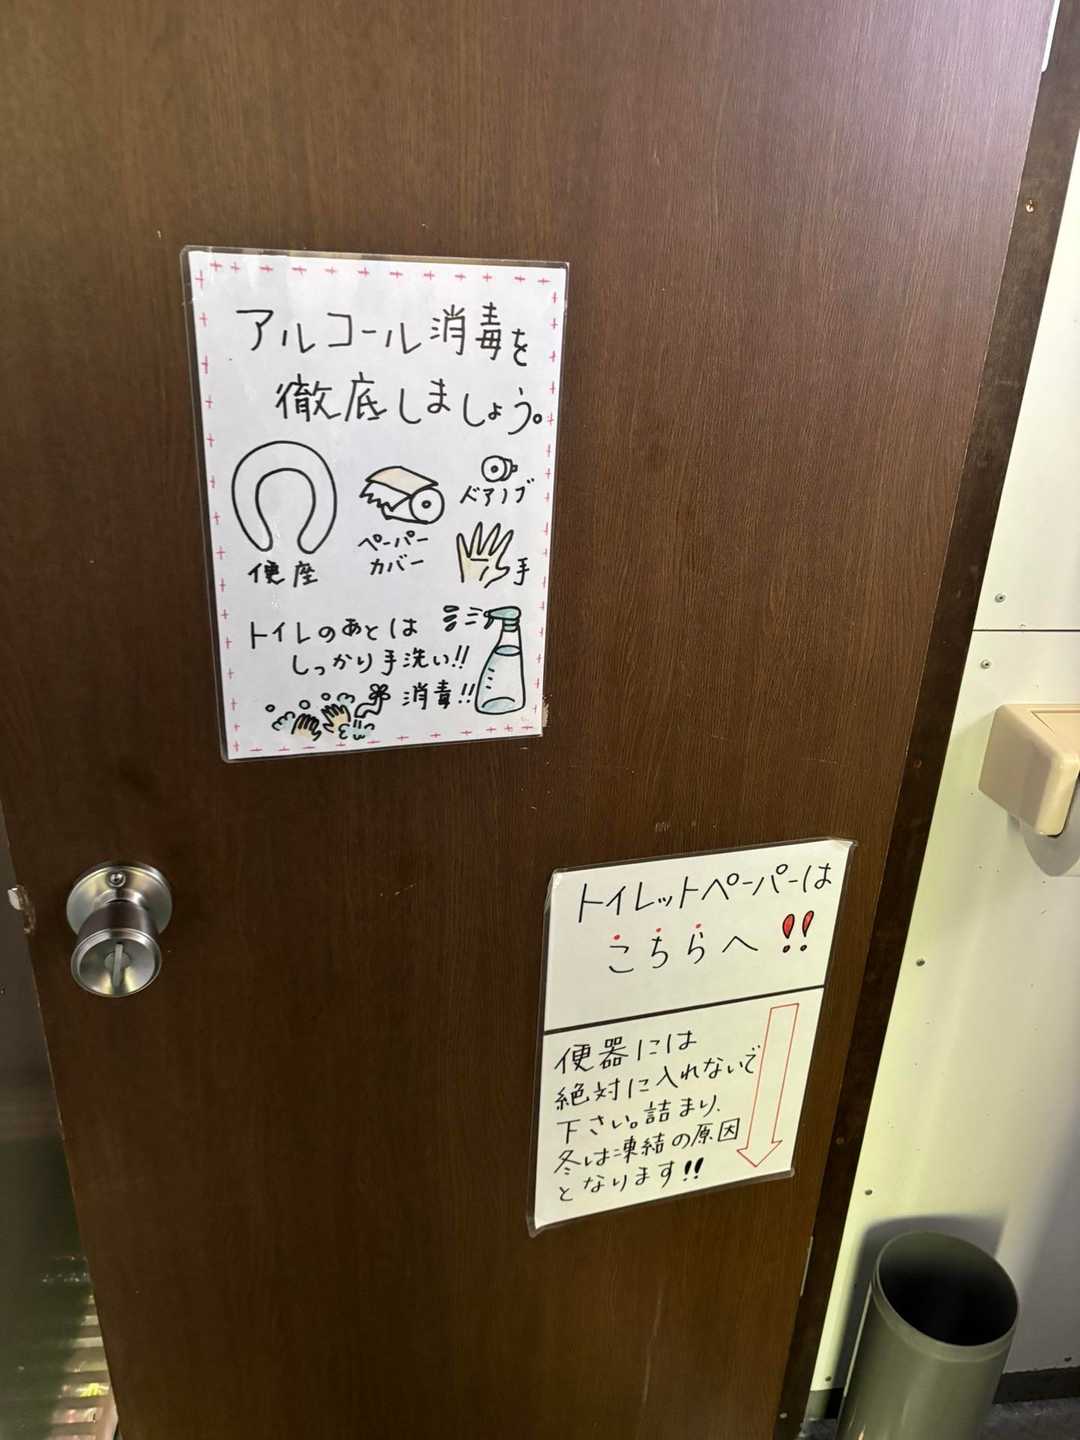 アルコール消毒を
徹底しましょう。
便座
ペーパー
カバー
ドアノブ
手
トイレのあとは
しっかり手洗い!!
消毒!!
トイレットペーパーは
こちらへ!!
便器には
絶対に入れないで
下さい。詰まり、
冬は凍結の原因
となります!!